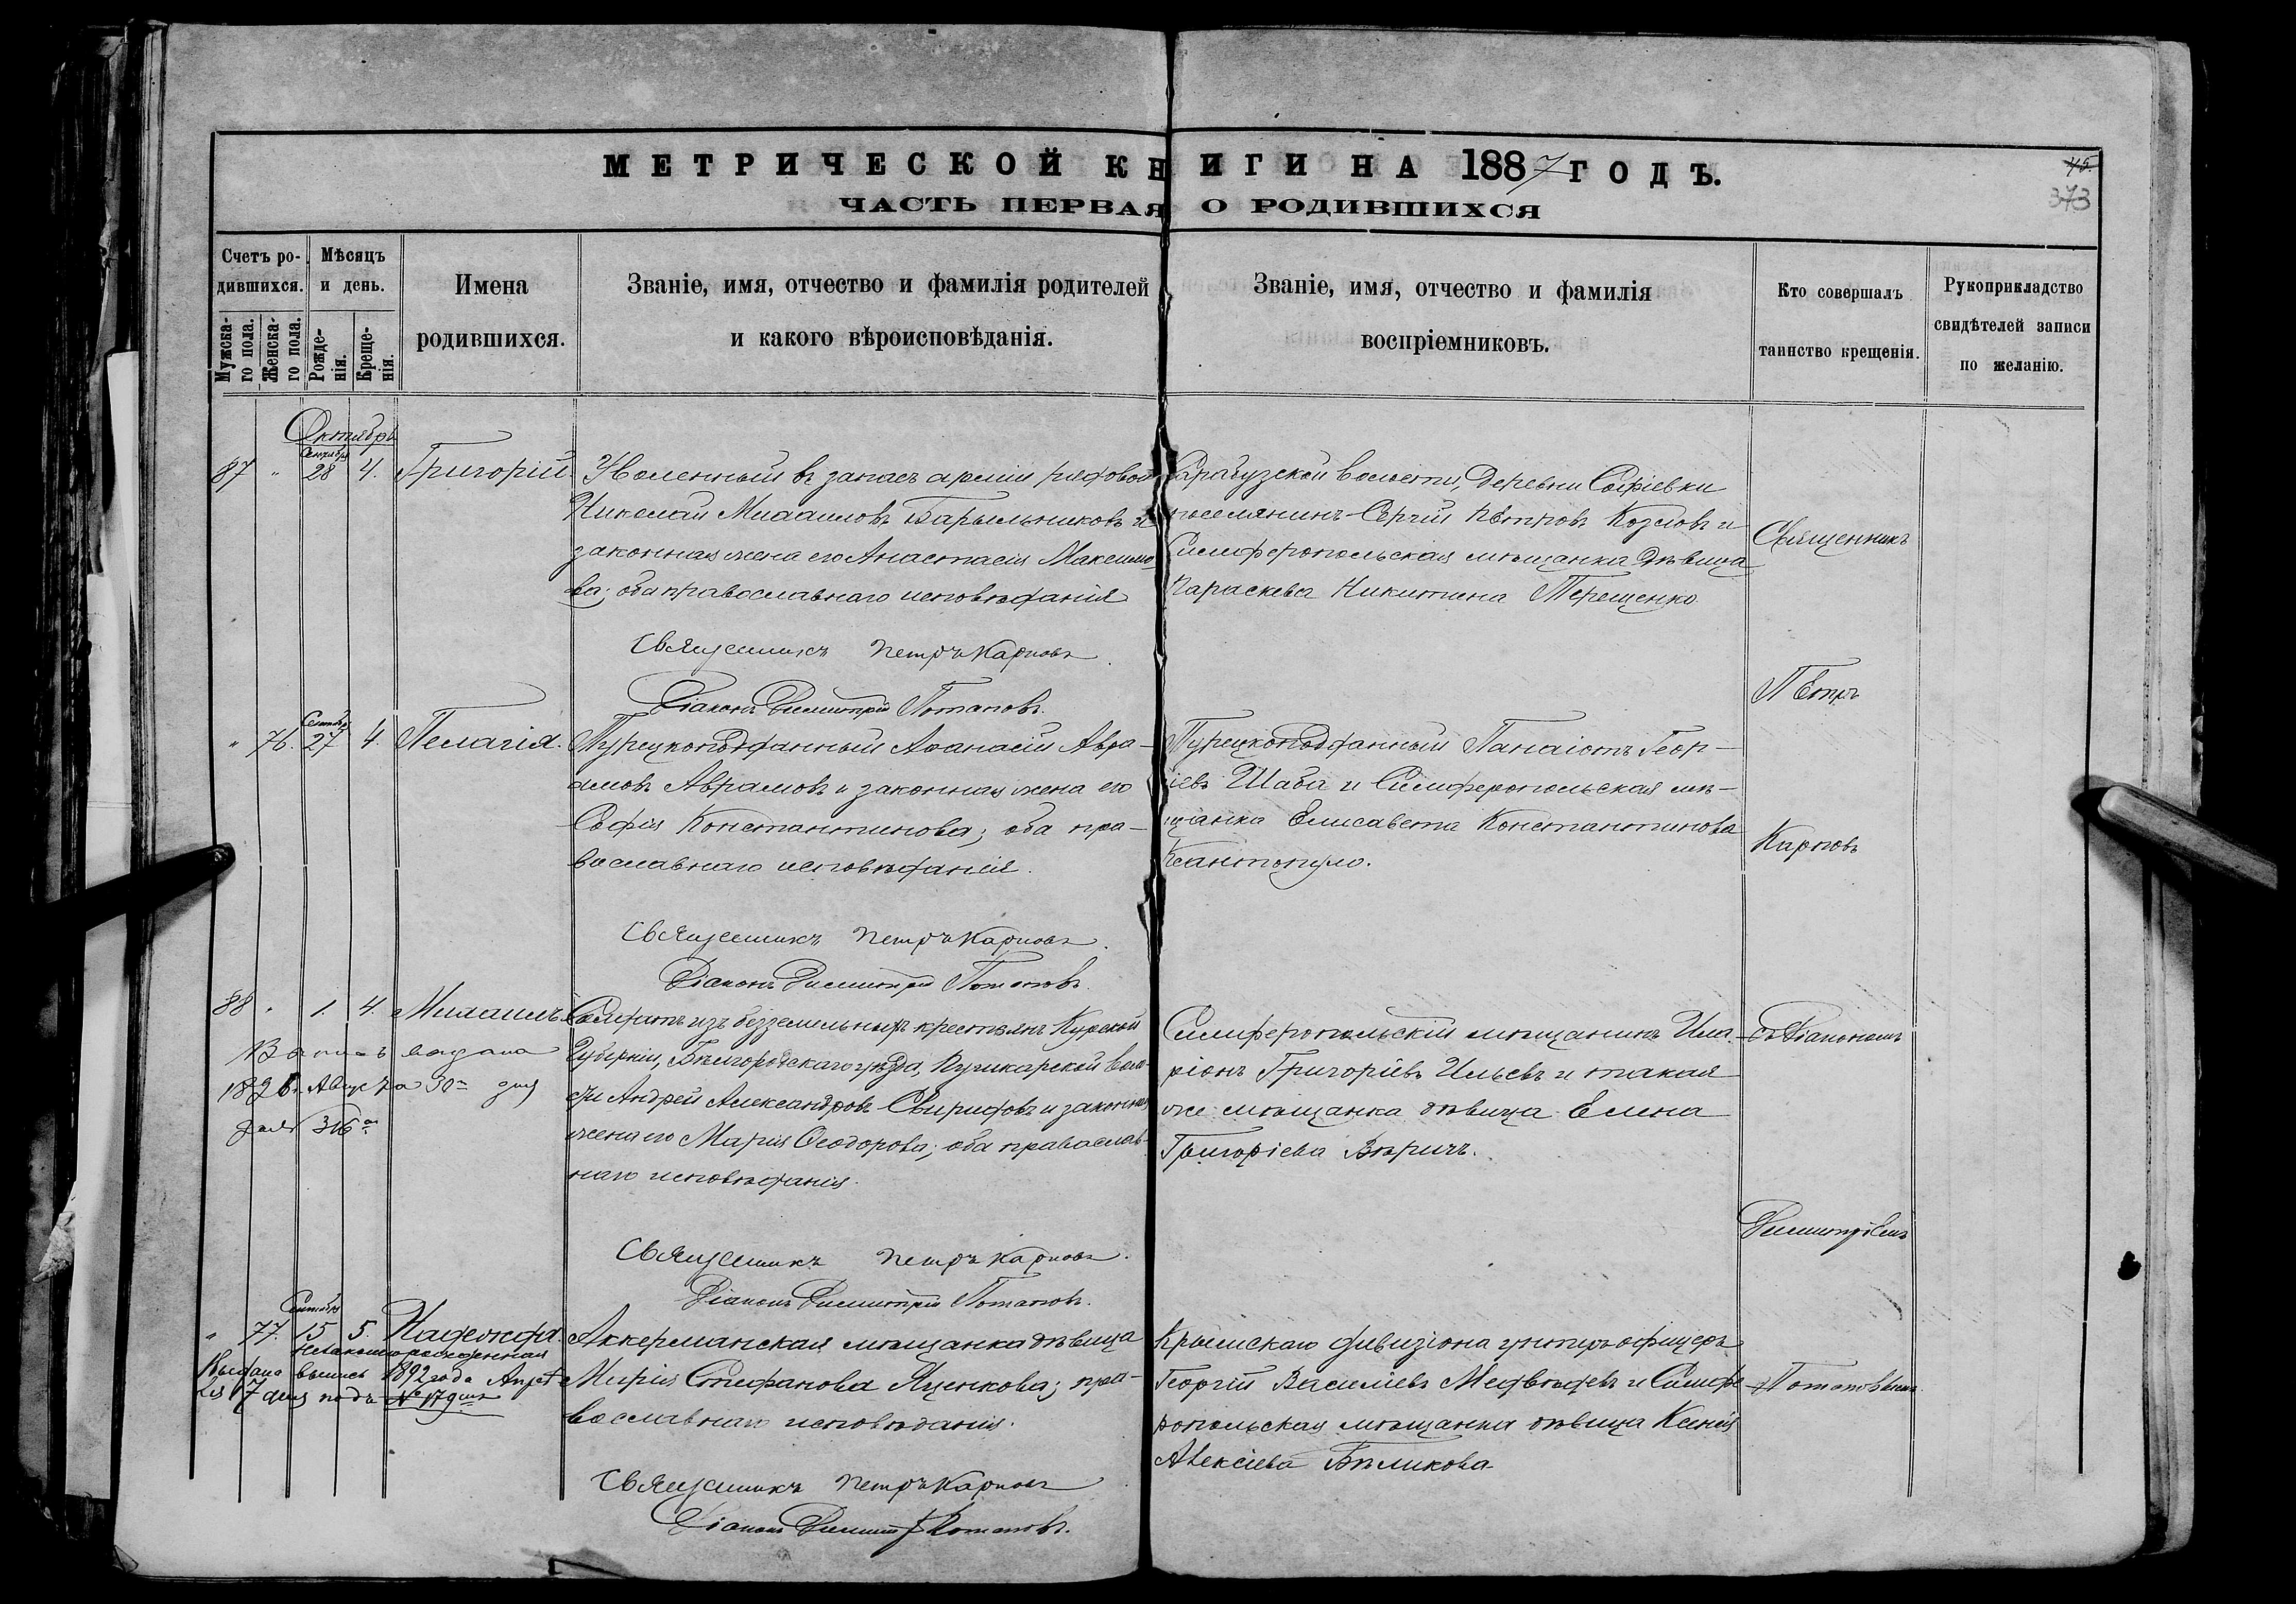 МЕТРИЧЕСКОЙ КНИГИ НА 1887 ГОДЪ.
ЧАСТЬ ПЕРВАЯ О РОДИВШИХСЯ
45.
373
Счетъ ро-
дившихся.
Мужска-
го пола.
Женска-
го пола.
Мѣсяцъ
и день.
Рожде-
нія.
Креще-
нія.
Имена
родившихся.
Званіе, имя, отчество и фамилія родителей
и какого вѣроисповѣданія.
Званіе, имя, отчество и фамилія
воспріемниковъ.
Кто совершалъ
таинство крещенія.
Рукоприкладство
свидѣтелей записи
по желанію.
Октябрь
Сентябр
87 " 28 4. Григорій.
Уволенный въ запасъ арміи рядовой
Николай Михаиловъ Барыльниковъ и
законная жена его Анастасія Максимо-
ва; оба православнаго исповѣданія
Священникъ Петръ Карповъ.
Діаконъ Димитрій Потаповъ.
Сарабузской волости, деревни Софіевки
поселянинъ Сергій Петровъ Козловъ и
Симферопольская мѣщанка дѣвица
Параскева Никитина Терещенко
Священникъ
Петръ
Карповъ
Сентябр
" 76. 27 4. Пелагія.
Турецкоподданный Аѳанасій Авра-
амовъ Аврамовъ и законная жена его
Софія Константинова; оба пра-
вославнаго исповѣданія.
Священникъ Петръ Карповъ.
Діаконъ Димитрій Потаповъ.
Турецкоподданный Панаіотъ Геор-
іевъ Шаба и Симферопольская мѣ-
щанка Елисавета Константинова
Ксантопуло.
88 " 1. 4. Михаилъ.
Солдатъ изъ безземельныхъ крестьянъ Курской
Губерніи, Бѣлгородскаго уѣзда, Пушкарской воло-
сти Андрей Александровъ Свиридовъ и законная
жена его Марія Ѳеодорова; оба православ-
наго исповѣданія.
Священникъ Петръ Карповъ.
Діаконъ Димитрій Потаповъ.
Августа 30 дня
316
Симферопольскій мѣщанинъ Ила-
ріонъ Григоріевъ Ильевъ и такая
же мѣщанка дѣвица Елена
Григоріева
съ Діакономъ
Димитріемъ
Потаповымъ
Сентябр
" 77. 15 5. Надежда.
незаконнорожденная
Выдана выпись 1892 года Апрѣ-
ля 7 дня подъ № 179
Аккерманская мѣщанка дѣвица
Марія Стефанова Яценкова; пра-
вославнаго исповѣданія.
Священникъ Петръ Карповъ
Діаконъ Димитрій Потаповъ.
Крымскаго дивизіона унтеръ офицеръ
Георгій Василіевъ Медвѣдевъ и Симфе-
ропольская мѣщанка дѣвица Ксенія
Алексіева Бѣликова